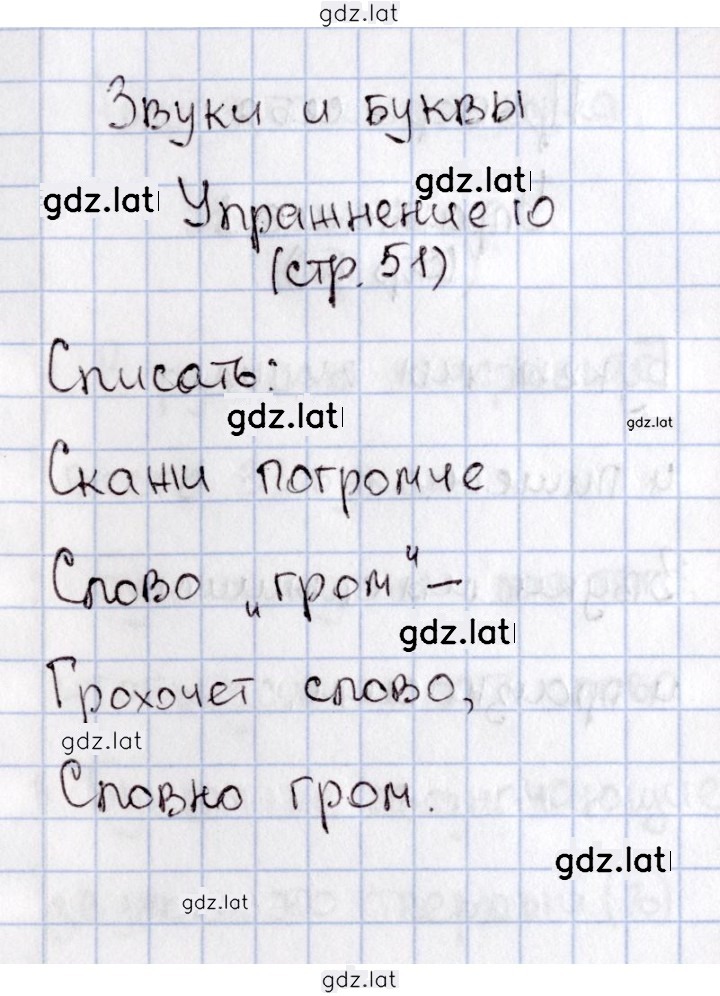 gdz.lat
Звуки и буквы
gdz.lat
gdz.lat
Упражнение 10
(стр. 51)
Списать:
gdz.lat
gdz.lat
Скажи погромче
Слово „гром“ –
gdz.lat
Грохочет слово,
gdz.lat
Словно гром.
gdz.lat
gdz.lat
gdz.lat